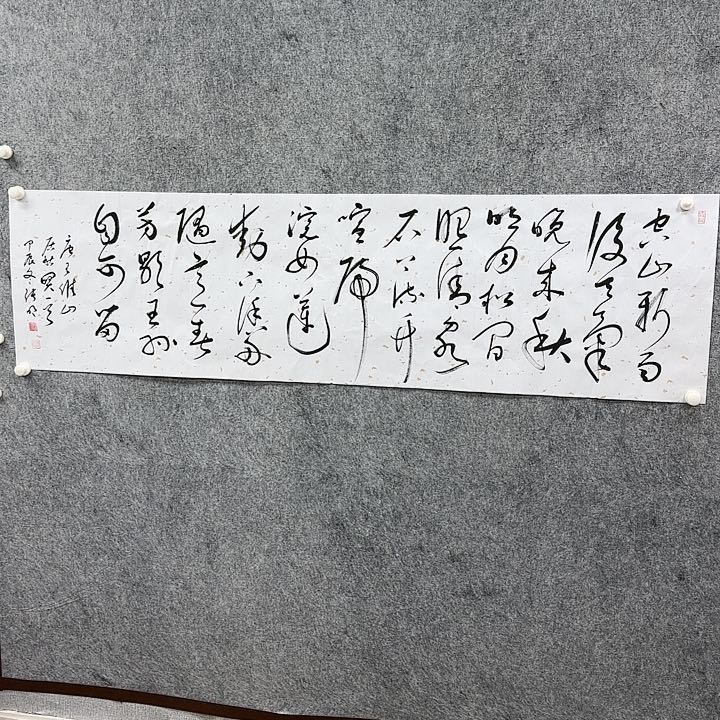 空山新雨
後天氣
晚来秋
明月松間
照清泉
石上流竹
喧歸
浣女蓮
動下漁舟
随意春
芳歇王孫
自可留
唐王維山
居秋暝一首
甲辰冬